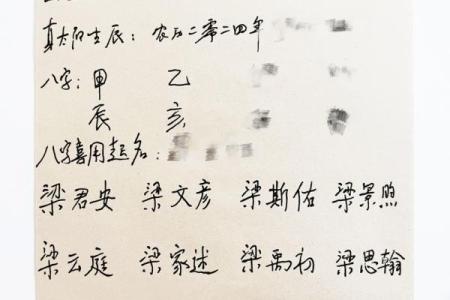 真太阳生辰：农历二零二四年
八字：甲 乙
辰 亥
八字喜用起名：
梁君安 梁文彦 梁斯佑 梁景煦
梁云庭 梁家述 梁禹初 梁思翰